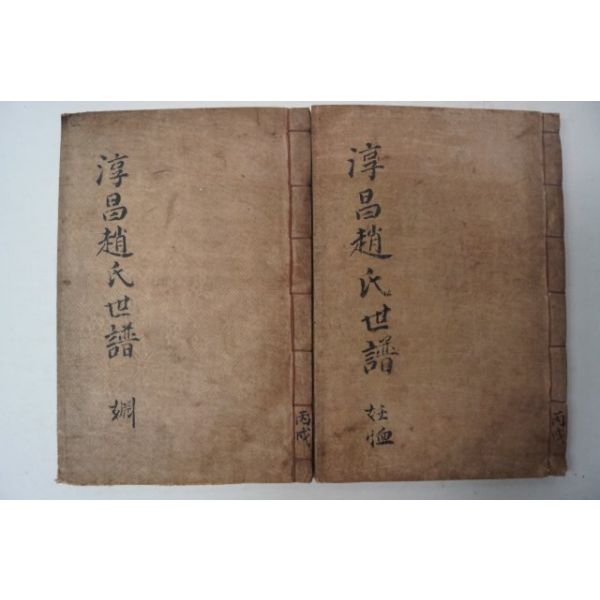 淳昌趙氏世譜
婣
丙戌
淳昌趙氏世譜
妊恤
丙戌